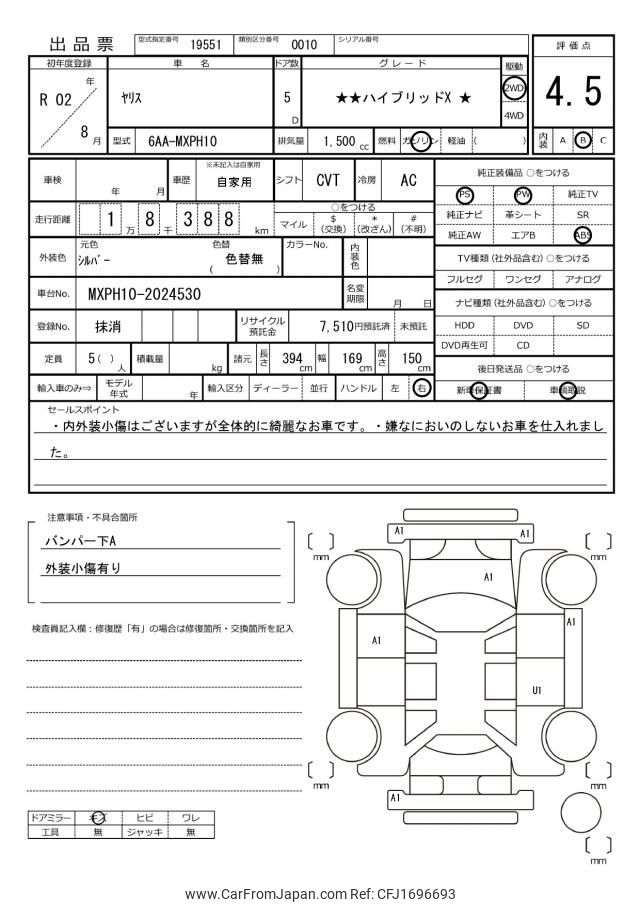 出品票
型式指定番号 19551 類別区分番号 0010 シリアル番号
評価点
4.5
初年度登録 車名 ドア数 グレード 駆動
R 02 年 / 8 月
ヤリス
5 D
★★ハイブリッドX ★
2WD
4WD
型式 6AA-MXPH10 排気量 1,500 cc 燃料 ガソリン 軽油 ( )
内装 A B C
車検 年 月 車歴 ※未記入は自家用 自家用 シフト CVT 冷房 AC
走行距離 1 万 8 千 3 8 8 km
○をつける
マイル $(交換) *(改ざん) #(不明)
外装色 元色 シルバー 色替 ( 色替無 ) カラーNo. 内装色
車台No. MXPH10-2024530 名変期限 月 日
登録No. 抹消 リサイクル預託金 7,510円預託済 未預託
定員 5 ( ) 人 積載量 kg 諸元 長さ 394 cm 幅 169 cm 高さ 150 cm
輸入車のみ⇒ モデル年式 年 輸入区分 ディーラー 並行 ハンドル 左 右
純正装備品 ○をつける
PS PW 純正TV
純正ナビ 革シート SR
純正AW エアB ABS
TV種類 (社外品含む) ○をつける
フルセグ ワンセグ アナログ
ナビ種類 (社外品含む) ○をつける
HDD DVD SD
DVD再生可 CD
後日発送品 ○をつける
新車保証書 車輌取説
セールスポイント
・内外装小傷はございますが全体的に綺麗なお車です。・嫌なにおいのしないお車を仕入れまし
た。
注意事項・不具合箇所
バンパー下A
外装小傷有り
検査員記入欄：修復歴「有」の場合は修復箇所・交換箇所を記入
ドアミラー キズ ヒビ ワレ
工具 無 ジャッキ 無
A1 A1
mm mm
A1
A1 A1
U1
mm mm
A1
mm
www.CarFromJapan.com Ref: CFJ1696693